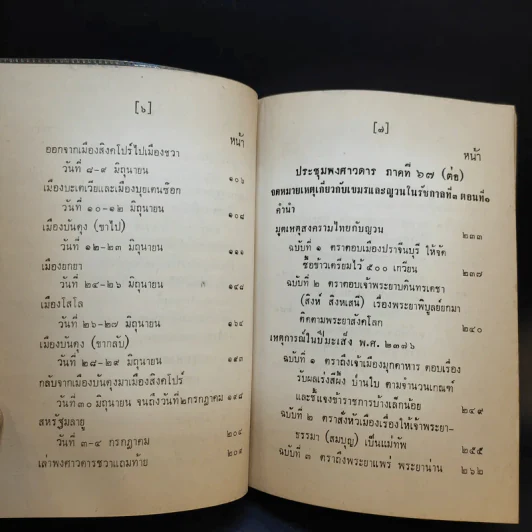 [๖]
หน้า
ออกจากเมืองสิงคโปร์ไปเมืองชวา
วันที่ ๘-๙ มิถุนายน ๑๐๖
เมืองบะเตเวียและเมืองบุยเตนซ๊อก
วันที่ ๑๐-๑๒ มิถุนายน ๑๐๘
เมืองบันดุง (ขาไป)
วันที่ ๑๒-๒๓ มิถุนายน ๑๑๑
เมืองยกยา
วันที่ ๒๔-๒๖ มิถุนายน ๑๔๘
เมืองโสโล
วันที่ ๒๖-๒๗ มิถุนายน ๑๖๔
เมืองบันดุง (ขากลับ)
วันที่ ๒๘-๒๙ มิถุนายน
กลับจากเมืองบันดุงมาเมืองสิงคโปร์
วันที่ ๓๐ มิถุนายน จนถึงวันที่ ๒ กรกฎาคม ๑๙๘
สหรัฐมลายู
วันที่ ๓-๔ กรกฎาคม ๒๐๔
เล่าพงศาวดารชวาแถมท้าย ๒๐๙
[๗]
หน้า
ประชุมพงศาวดาร ภาคที่ ๖๗ (ต่อ)
จดหมายเหตุเกี่ยวกับเขมรและญวนในรัชกาลที่ ๓ ตอนที่ ๑
คำนำ
มูลเหตุสงครามไทยกับญวน ๒๓๓
ฉบับที่ ๑ ตราตอบเมืองปราจีนบุรี ให้จัด
ซื้อข้าวเตรียมไว้ ๕๐๐ เกวียน ๒๓๗
ฉบับที่ ๒ ตราตอบเจ้าพระยาบดินทรเดชา
(สิงห์ สิงหเสนี) เรื่องพระยาพิบูลย์ยกมา
ติดตามพระยาสังคโลก ๒๔๐
เหตุการณ์ในปีมะเส็ง พ.ศ. ๒๓๗๖
ฉบับที่ ๑ ตราถึงเจ้าเมืองมุกดาหาร ตอบเรื่อง
รับผลเร่งสีผึ้ง ป่านใบ ตามจำนวนเกณฑ์
และชี้แจงข้าราชการบ้างเล็กน้อย ๒๔๙
ฉบับที่ ๒ ตราสั่งหัวเมืองเรื่องให้เจ้าพระยา-
ธรรมา (สมบุญ) เป็นแม่ทัพ ๒๕๕
ฉบับที่ ๓ ตราถึงพระยาแพร่ พระยาน่าน ๒๖๒